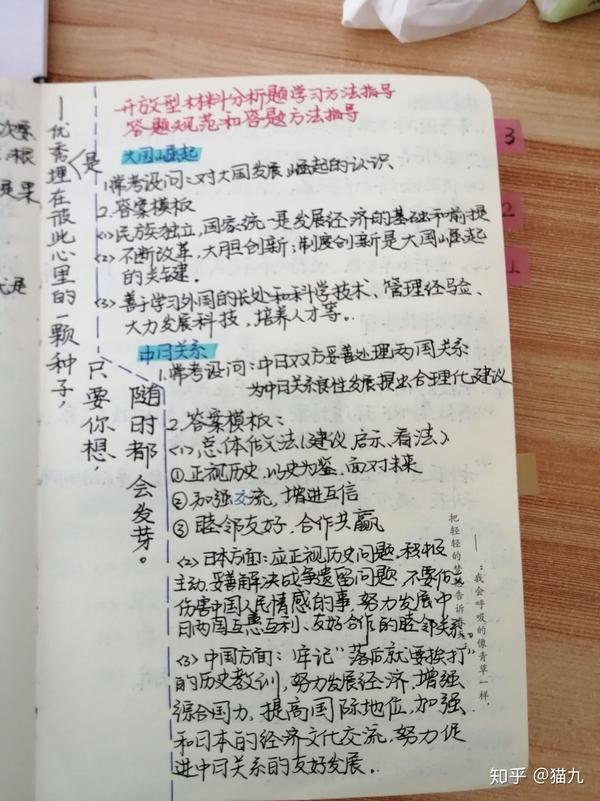 开放型材料分析题学习方法指导
答题规范和答题方法指导
大国崛起
1.常考设问:对大国发展崛起的认识
2.答案模板
<1>民族独立,国家统一是发展经济的基础和前提
<2>不断改革,大胆创新;制度创新是大国崛起
的关键.
<3>善于学习外国的长处和科学技术、管理经验、
大力发展科技,培养人才等。
中日关系
1.常考设问:中日双方妥善处理两国关系
为中日关系良性发展提出合理化建议
2.答案模板:
<1>总体做文法(建议、启示、看法)
①正视历史,以史为鉴,面对未来
②加强交流,增进互信
③睦邻友好,合作共赢
<2>日本方面:应正视历史问题,积极
主动,妥善解决战争遗留问题,不要做
伤害中国人民情感的事,努力发展中
日两国互惠互利、友好合作的睦邻关系。
<3>中国方面:牢记“落后就要挨打”
的历史教训,努力发展经济,增强
综合国力,提高国际地位,加强
和日本的经济文化交流,努力促
进中日关系的友好发展.
——优秀埋在彼此心里的一颗种子,
只要你想,
随时都会发芽。
是
根
是果
把轻轻的梦告诉
——:我会呼吸的像青草一样,
3
2
1
知乎 @猫九